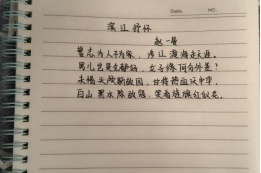 Date. NO.
滨江抒怀
赵一曼
誓志为人不为家，涉江渡海走天涯。
男儿岂是全都好，女子缘何分外差？
未惜头颅新故国，甘将热血沃中华。
白山黑水除敌寇，笑看旌旗红似花。